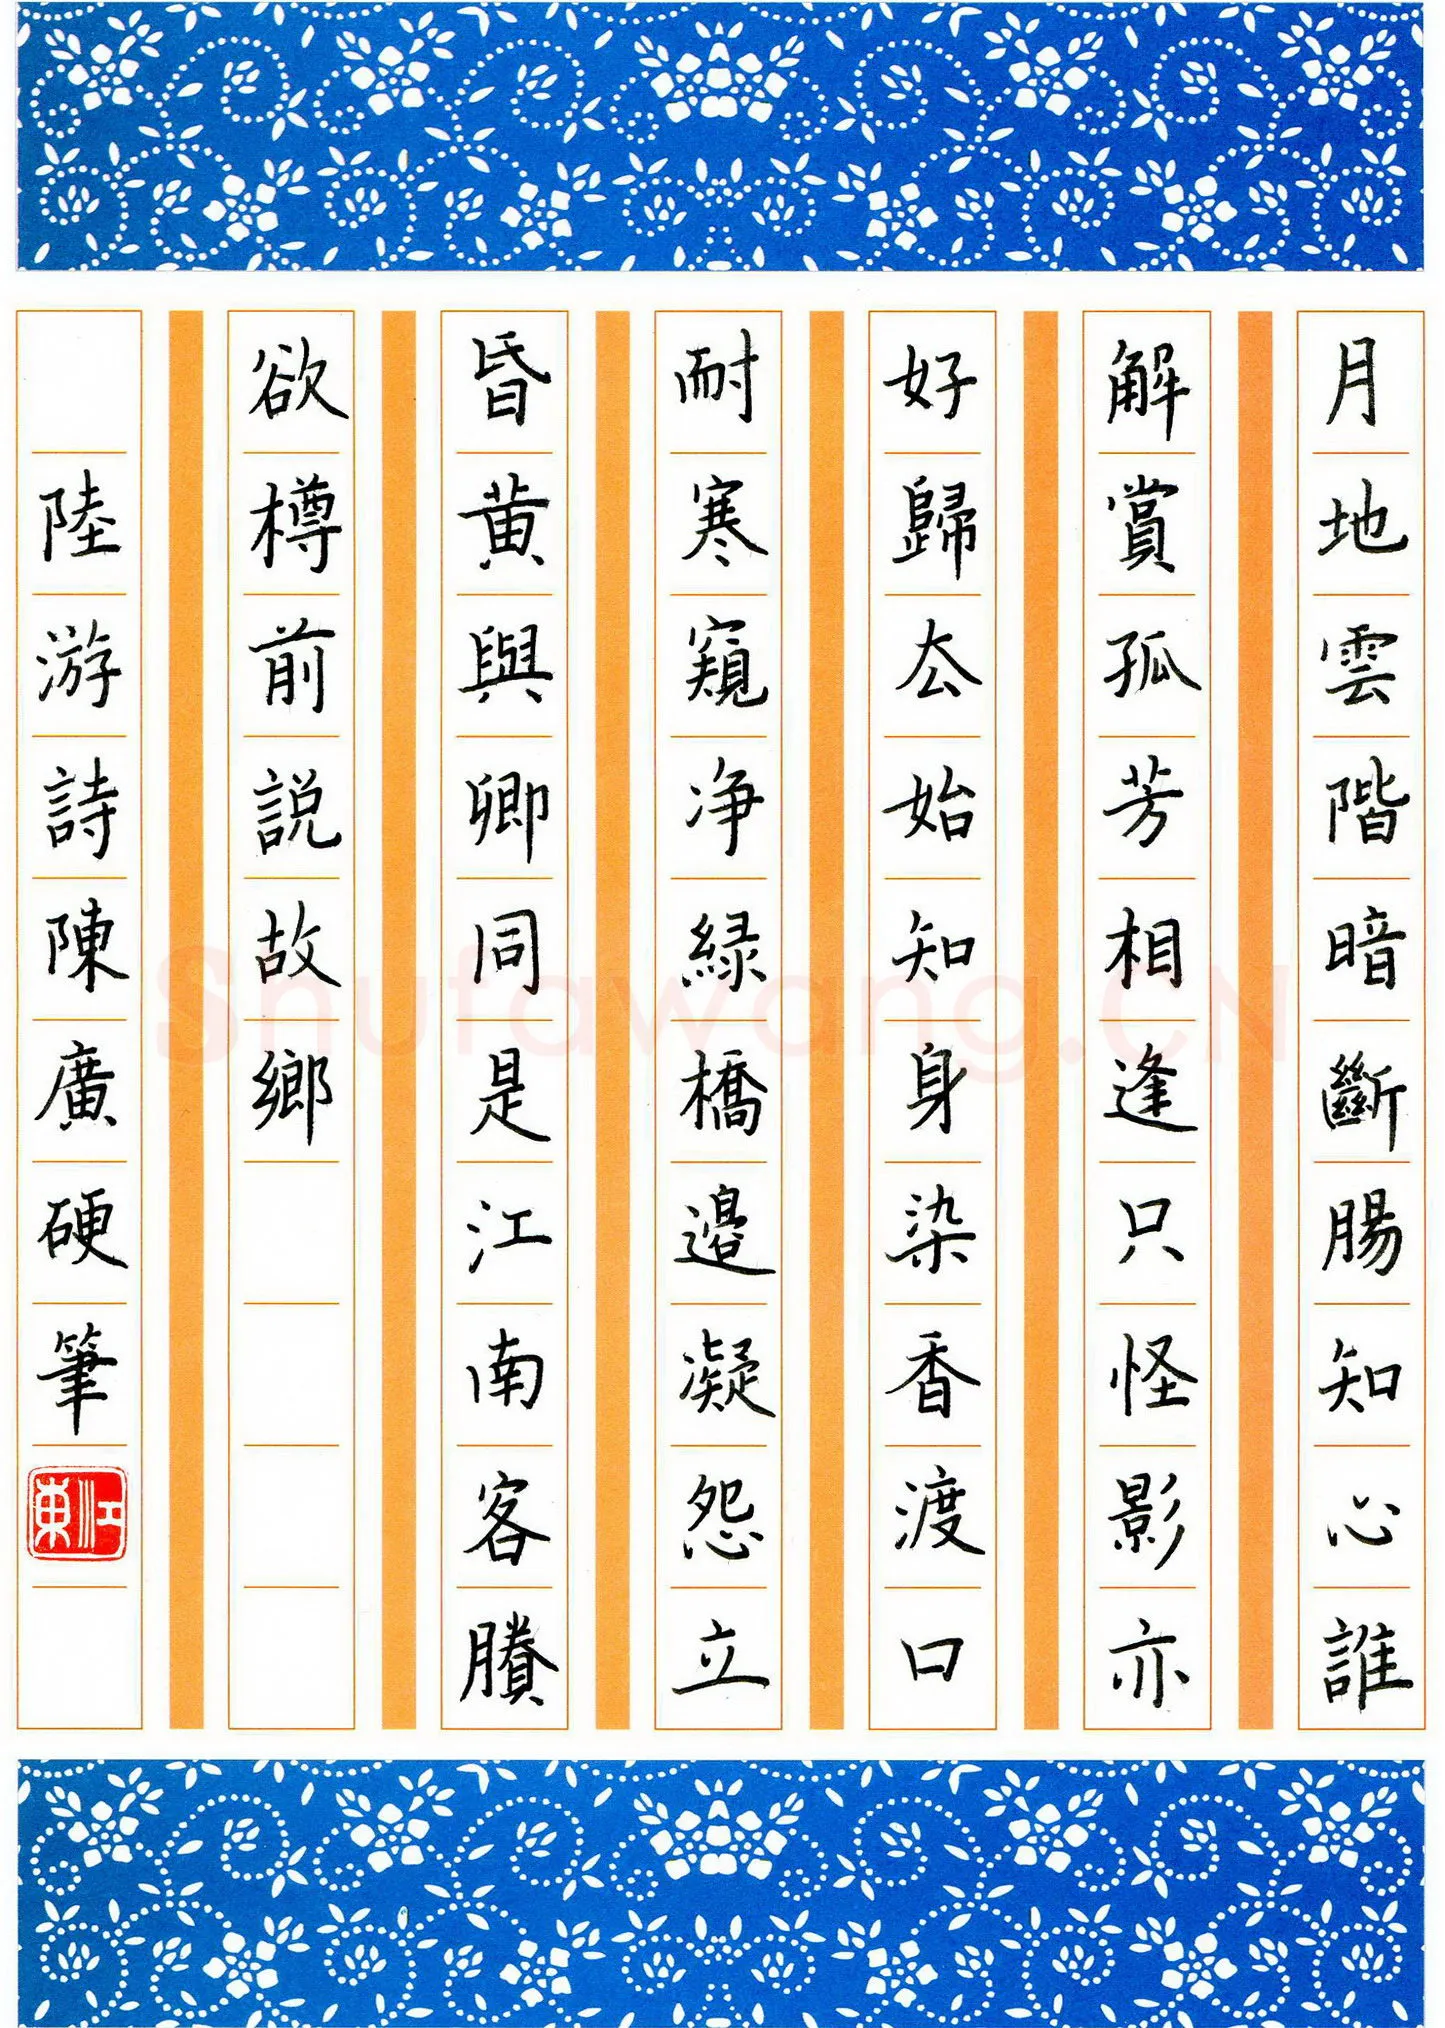 月地雲階暗斷腸知心誰
解賞孤芳相逢只怪影亦
好歸厺始知身染香渡口
耐寒窺净緑橋邉凝怨立
昏黄與卿同是江南客賸
欲樽前説故鄉
陸游詩陳廣硬筆
江東
Shufawang.CN